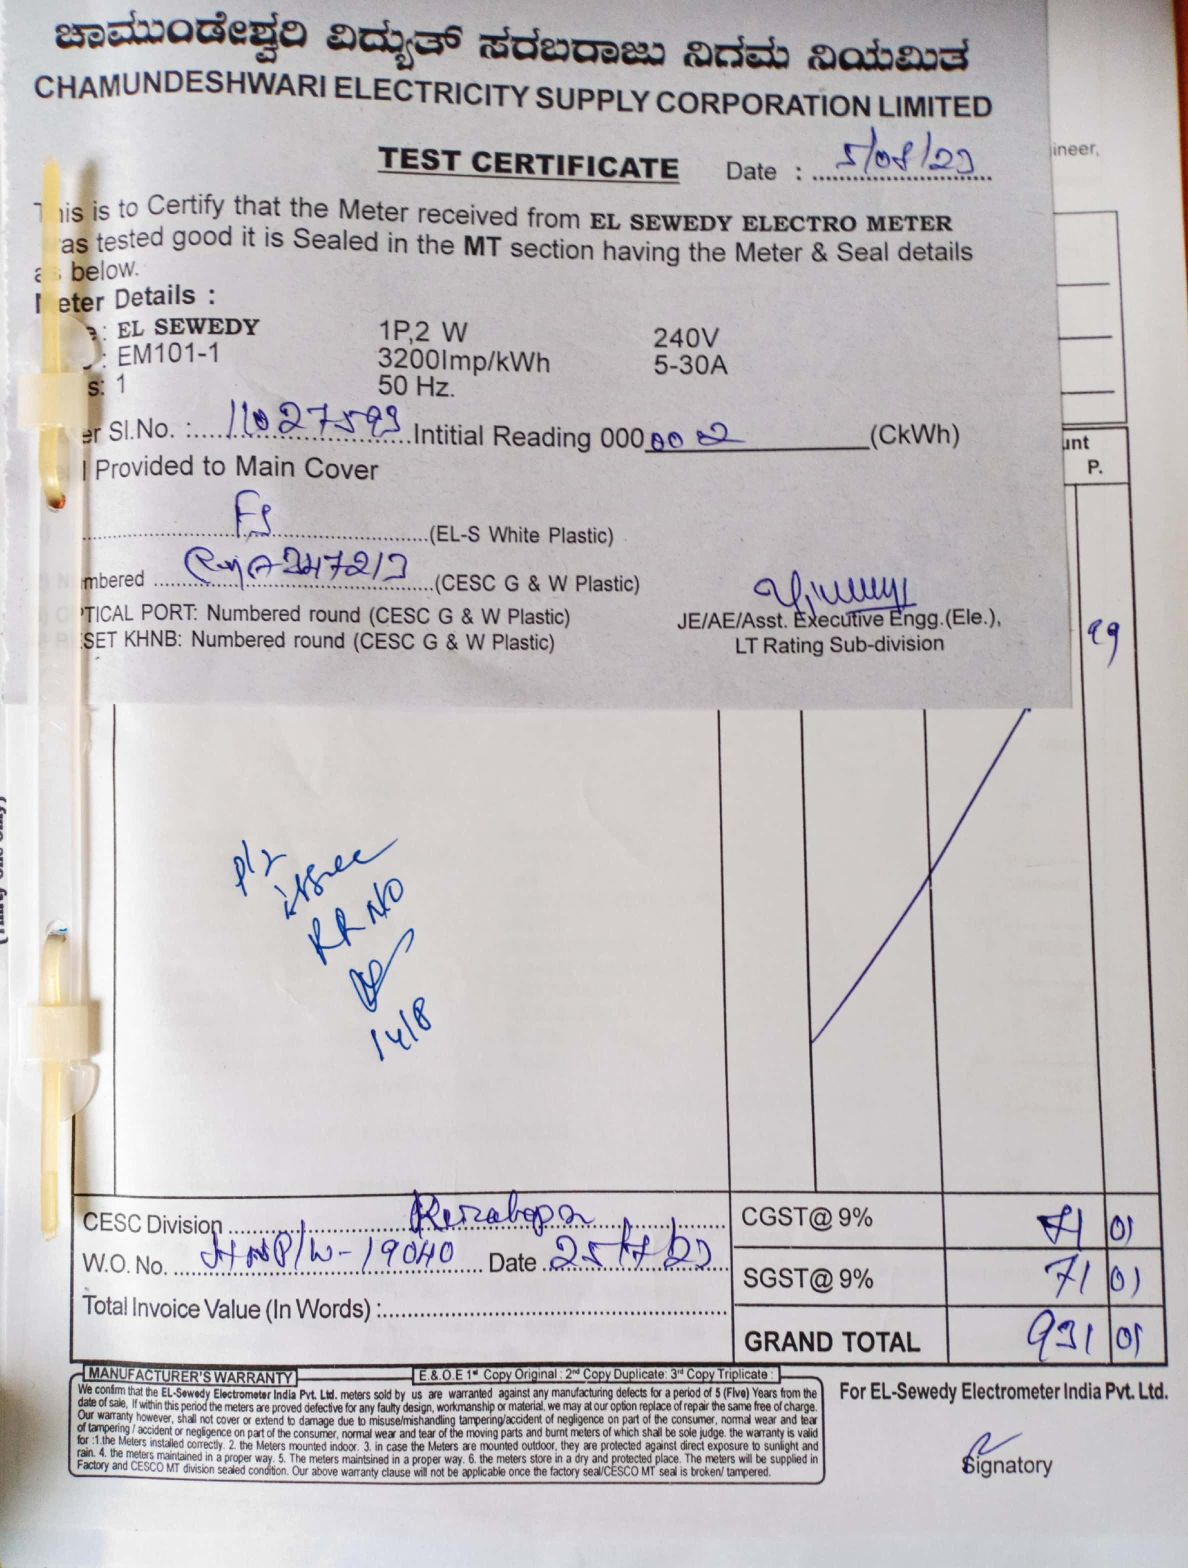 ಚಾಮುಂಡೇಶ್ವರಿ ವಿದ್ಯುತ್ ಸರಬರಾಜು ನಿಗಮ ನಿಯಮಿತ
CHAMUNDESHWARI ELECTRICITY SUPPLY CORPORATION LIMITED
ineer,
TEST CERTIFICATE Date : 5/08/23
This is to Certify that the Meter received from EL SEWEDY ELECTRO METER
was tested good it is Sealed in the MT section having the Meter & Seal details
as below.
Meter Details :
: EL SEWEDY 1P,2 W 240V
: EM101-1 3200Imp/kWh 5-30A
s: 1 50 Hz.
er Sl.No. : 11027599 Intitial Reading 000 00 2 (CkWh)
unt
P.
l Provided to Main Cover
FS (EL-S White Plastic)
mbered (CESC G & W Plastic)
TICAL PORT: Numbered round (CESC G & W Plastic)
SET KHNB: Numbered round (CESC G & W Plastic)
JE/AE/Asst. Executive Engg.(Ele.),
LT Rating Sub-division
99
P/r
issue
RR NO
14/8
CESC Division
W.O. No. HNP/W-19040 Date 25/7/23
Total Invoice Value (In Words) :
CGST@ 9% 71 01
SGST@ 9% 71 01
GRAND TOTAL 931 01
MANUFACTURER'S WARRANTY E & O.E 1st Copy Original : 2nd Copy Duplicate: 3rd Copy Triplicate :
We confirm that the EL-Sewedy Electrometer India Pvt. Ltd. meters sold by us are warranted against any manufacturing defects for a period of 5 (Five) Years from the
date of sale, If within this period the meters are proved defective for any faulty design, workmanship or material, we may at our option replace of repair the same free of charge.
Our warranty however, shall not cover or extend to damage due to misuse/mishandling tampering/accident of negligence on part of the consumer, normal wear and tear
of tampering / accident or negligence on part of the consumer, normal wear and tear of the moving parts and burnt meters of which shall be sole judge. the warranty is valid
for :1.the Meters installed correctly. 2. the Meters mounted indoor. 3. in case the Meters are mounted outdoor, they are protected against direct exposure to sunlight and
rain. 4. the meters maintained in a proper way. 5. The meters maintsined in a proper way. 6. the meters store in a dry and protected place. The meters will be supplied in
Factory and CESCO MT division sealed condition. Our above warranty clause will not be applicable once the factory seal/CESCO MT seal is broken/ tampered.
For EL-Sewedy Electrometer India Pvt. Ltd.
Signatory